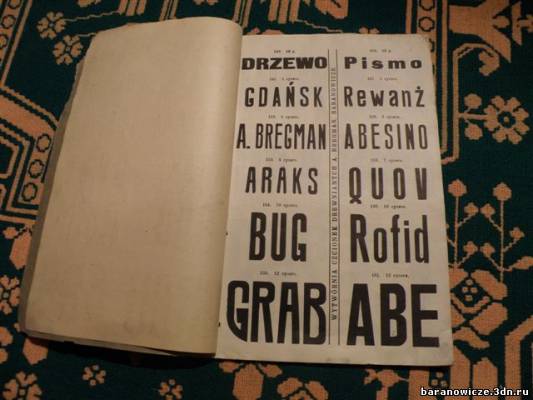 DRZEWO
GDAŃSK
A. BREGMAN
ARAKS
BUG
GRAB
WYTWÓRNIA CZCIONEK DREWNIANYCH A. BREGMAN BARANOWICZE
Pismo
Rewanż
ABESINO
QUOV
Rofid
ABE
baranowicze.3dn.ru